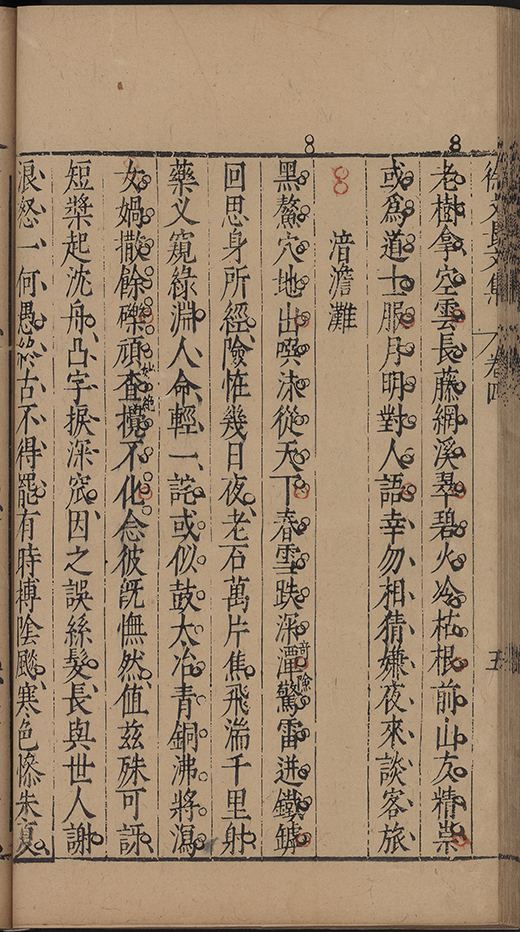 徐文長文集 卷四 五
老樹拿空雲長藤網溪翠碧火冷枯根前山友精祟
或爲道士服月明對人語幸勿相猜嫌夜來談客旅
湆澹灘
黑鰲穴地出噀沫從天下春雪跌深潭驚雷迸鐵罅
奇險
回思身所經險怪幾日夜老石萬片焦飛湍千里射
藥义窺綠淵人命輕一詫或似鼓太冶青銅沸將瀉
女媧撒餘礫頑査攪不化念彼旣憮然值兹殊可訝
妙絶
短槳起沈舟凸字捩深窊因之誤絲髮長與世人謝
浪怒一何愚終古不得罷有時搏陰颷寒色慘朱夏